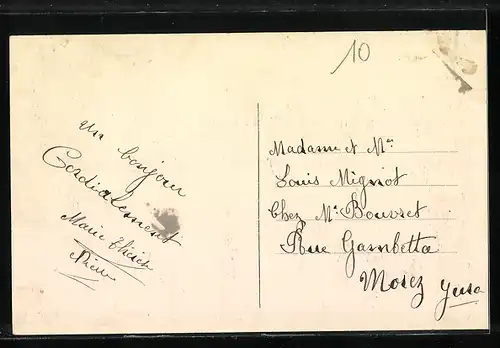 10
un bonjour
Cordialement
Marie
Madame et Mr
Louis Mignot
Chez Mr Bouvret
Rue Gambetta
Morez Jura